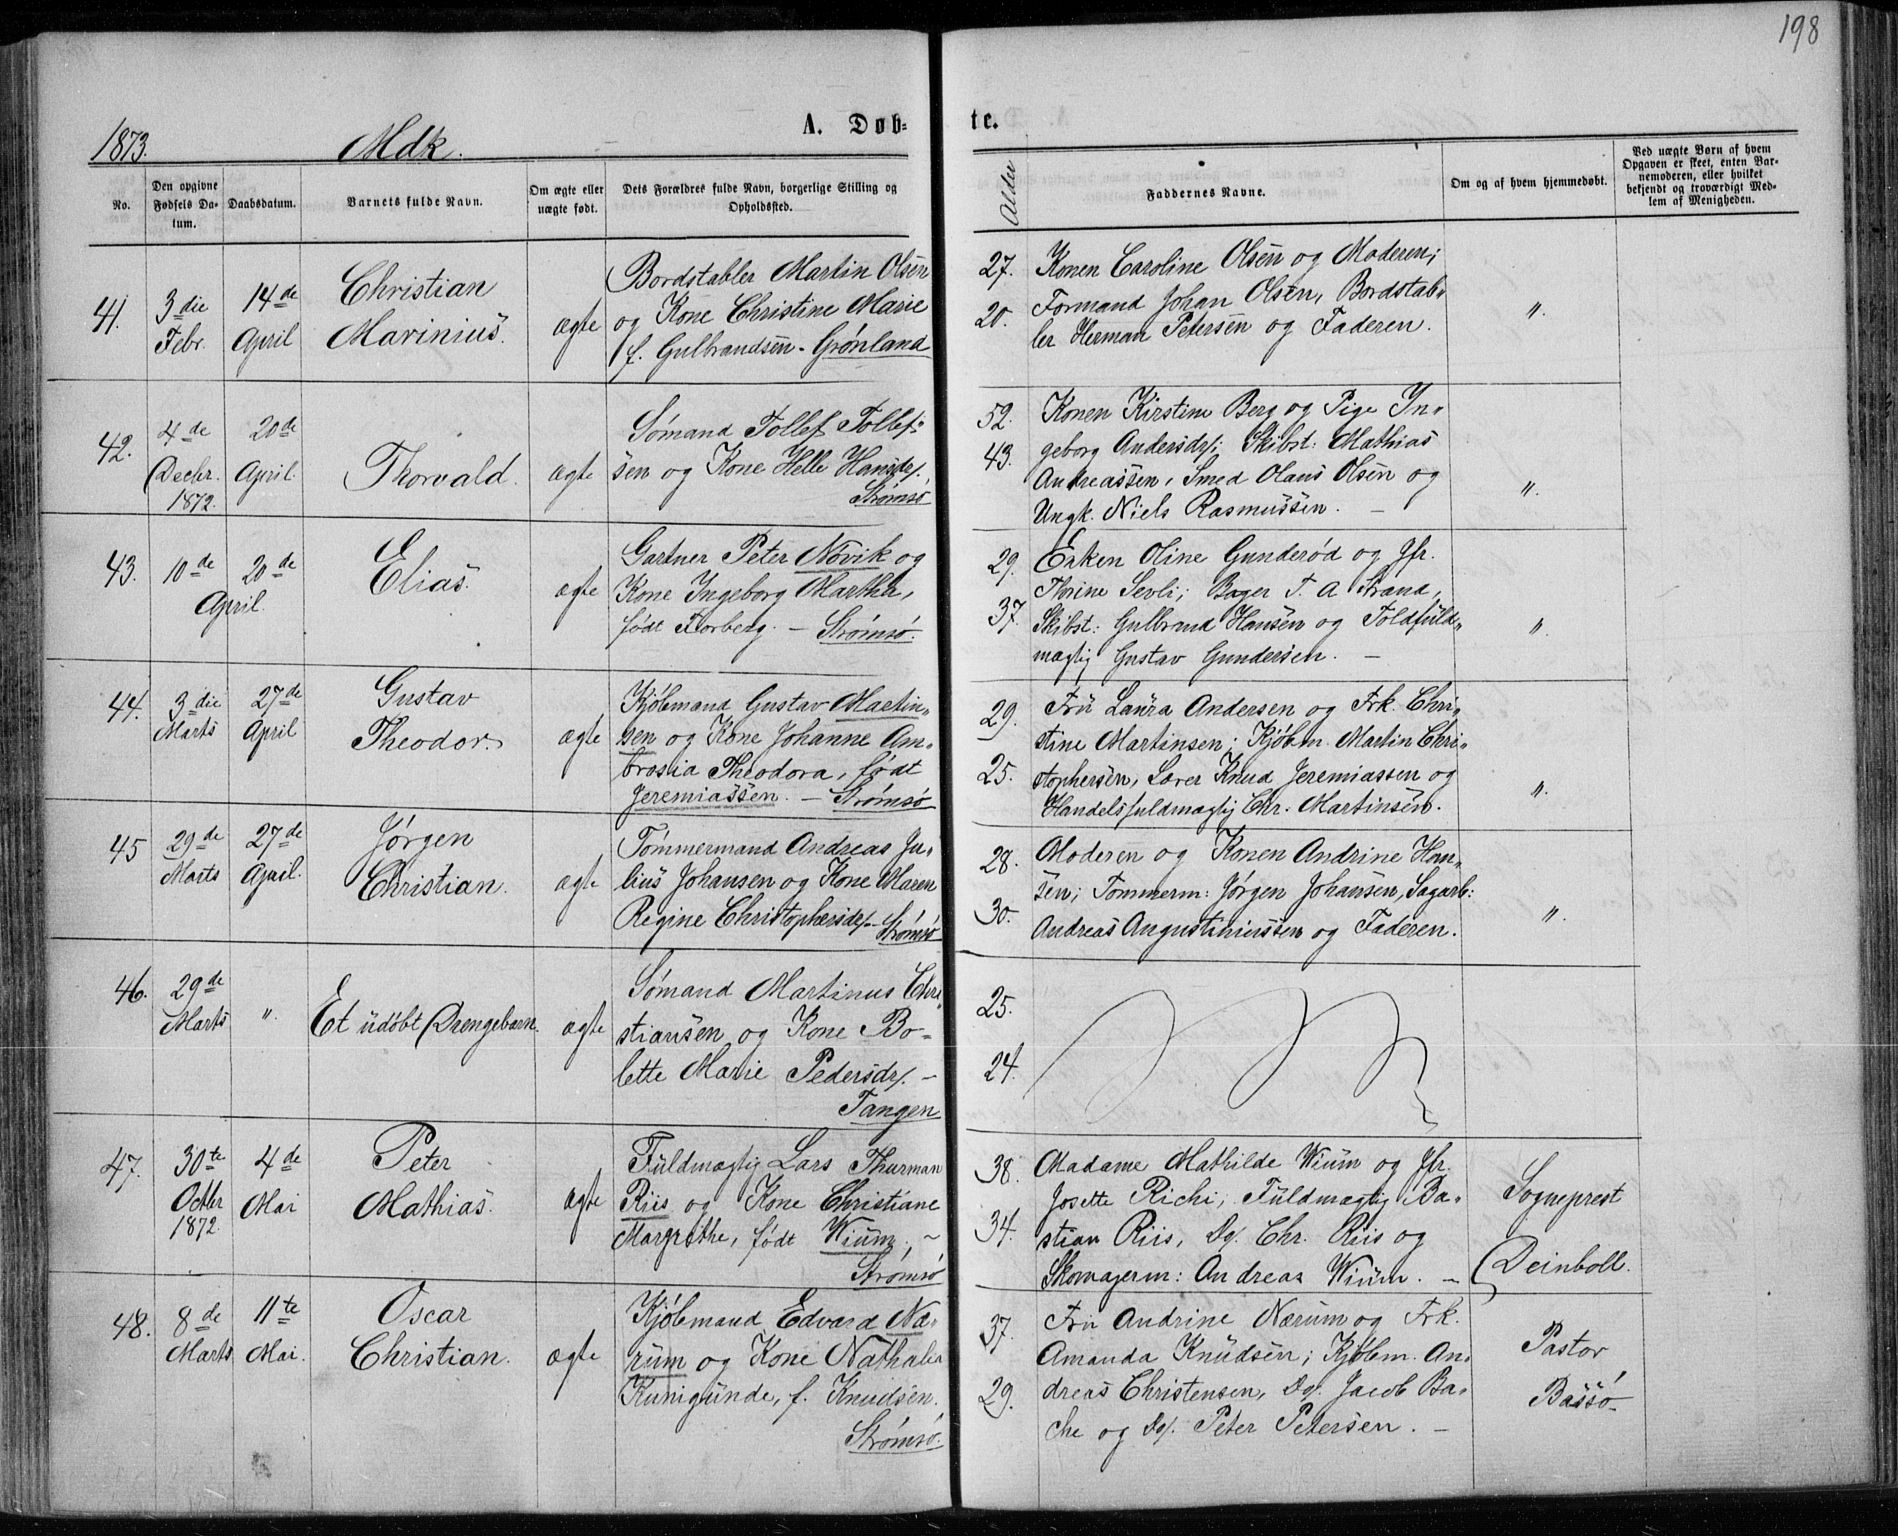 198
1873. Mdk. A. Døb- te.
No.
Den opgivne Fødsels Da-
tum.
Daabsdatum.
Barnets fulde Navn.
Om ægte eller
uægte født.
Dets Forældres fulde Navn, borgerlige Stilling og
Opholdssted.
Alder
Faddernes Navne.
Om og af hvem hjemmedøbt.
Ved uægte Børn af hvem
Opgaven er skeet, enten Bar-
nemoderen, eller hvilket
bekjendt og troværdigt Med-
lem af Menigheden.
41.
3die
Febr.
14de
April
Christian
Marinius.
ægte
Bordstabler Martin Olsen
og Kone Christine Marie
f. Gulbrandsen - Grønland
27.
20.
Konen Caroline Olsen og Moderen;
Formand Johan Olsen, Bordstab-
ler Herman Petersen og Faderen.
".
42.
4de
Decbr.
1872.
20de
April
Thorvald.
ægte
Sømand Tollef Tollef-
sen og Kone Helle Hansd/.
Strømsø
52.
43.
Konen Kirstine Berg og Pige In-
geborg Andersd/; Skibst: Mathias
Andreassen, Smed Olaus Olsen og
Ungk. Niels Rasmussen. -
".
43.
10de 20de
April.
Elias.
ægte
Gartner Peter Növik og
Kone Ingeborg Martha,
født Forberg. - Strømsø.
29.
37.
Enken Oline Gunderød og Jfr.
Thrine Sevli; Bager T. A Strand,
Skibst: Gulbrand Hansen og Toldfuld-
mægtig Gustav Gundersen. -
".
44.
3die
Marts
27de
April
Gustav
Theodor.
ægte
Kjøbmand Gustav Martin-
sen og Kone Johanne Am-
brosia Theodora, født
Jeremiassen. - Strømsø
29.
25.
Fru Laura Andersen og Frk. Chri-
stine Martinsen; Kjøbm. Martin Chri-
stophersen, Lærer Knud Jeremiassen og
Handelsfuldmægtig Chr. Martinsen.
".
45
29de
Marts
27de
April.
Jørgen
Christian.
ægte
Tømmermand Andreas Ju-
lius Johansen og Kone Maren
Regine Christophersd/. - Strømsø
28.
30.
Moderen og Konen Andrine Han-
sen; Tømmerm: Jørgen Johansen, Sagarb:
Andreas Augustiniussen og Faderen.
".
46.
29de
Marts
".
Et udøbt Drengebarn.
ægte
Sømand Martinus Chri-
stiansen og Kone Bo-
lette Marie Pedersd/. -
Tangen
25.
24.
47.
30te
Octbr
1872.
4de
Mai
Peter
Mathias.
ægte
Fuldmægtig Lars Thurman
Riis og Kone Christiane
Margrethe, født Wium. -
Strømsø
38.
34.
Madame Mathilde Wium og Jfr.
Josette Richi; Fuldmægtig Ba-
stian Riis, Do/. Chr. Riis og
Skomagerm: Andreas Wium. -
Sogneprest
Deinboll.
48.
8de
Marts
11te
Mai.
Oscar
Christian.
ægte
Kjøbmand Edvard Næ-
rum og Kone Nathalia
Kunigunde, f. Knudsen.
Strømsø.
37.
29.
Fru Andrine Nærum og Frk.
Amanda Knudsen; Kjøbm. An-
dreas Christensen, Do/. Jacob Ba-
che og Do/. Peter Petersen. -
Pastor
Bassø-